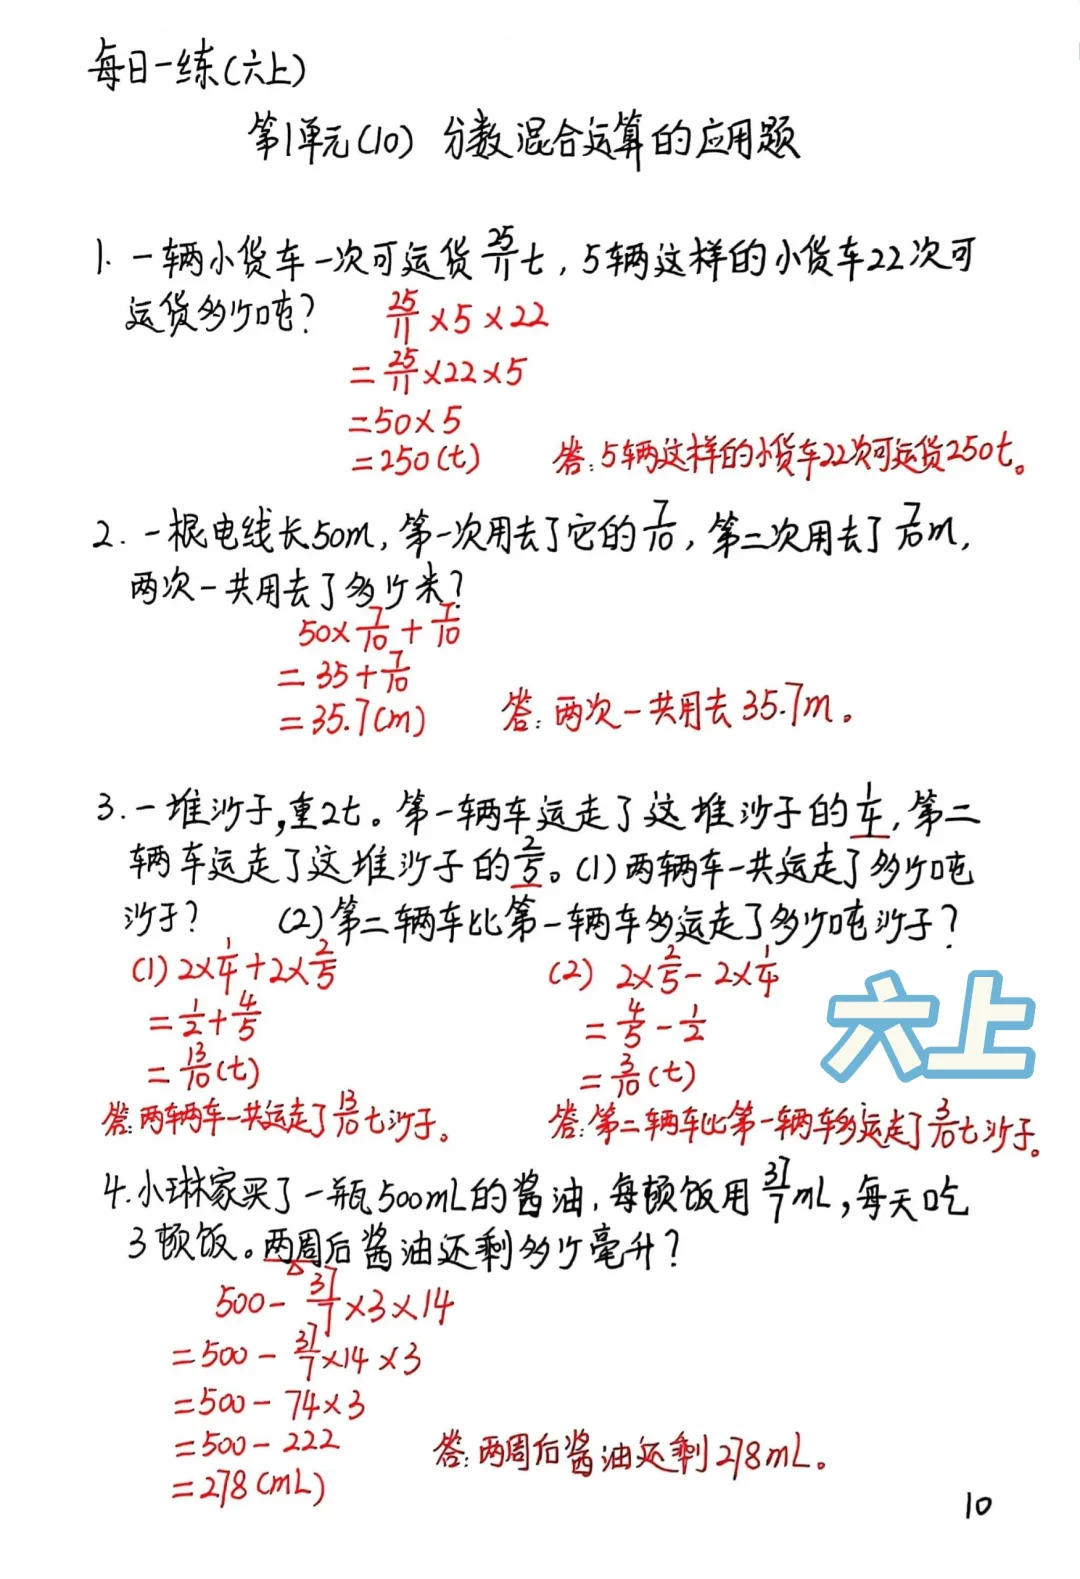 每日一练(六上)
第1单元(10) 分数混合运算的应用题
1. 一辆小货车一次可运货25/11t，5辆这样的小货车22次可
运货多少吨？
25/11×5×22
=25/11×22×5
=50×5
=250(t)
答：5辆这样的小货车22次可运货250t。
2. 一根电线长50m，第一次用去了它的7/10，第二次用去了7/10m，
两次一共用去了多少米？
50×7/10+7/10
=35+7/10
=35.7(m)
答：两次一共用去35.7m。
3. 一堆沙子，重2t。第一辆车运走了这堆沙子的1/4，第二
辆车运走了这堆沙子的2/5。(1)两辆车一共运走了多少吨
沙子？ (2)第二辆车比第一辆车多运走了多少吨沙子？
(1) 2×1/4+2×2/5
=1/2+4/5
=13/10(t)
答：两车两车一共运走了13/10t沙子。
(2) 2×2/5-2×1/4
=4/5-1/2
=3/10(t)
答：第二辆车比第一辆车多运走了3/10t沙子。
六上
4. 小琳家买了一瓶500mL的酱油，每顿饭用37/7mL，每天吃
3顿饭。两周后酱油还剩多少毫升？
500-37/7×3×14
=500-37/7×14×3
=500-74×3
=500-222
=278(mL)
答：两周后酱油还剩278mL。
10